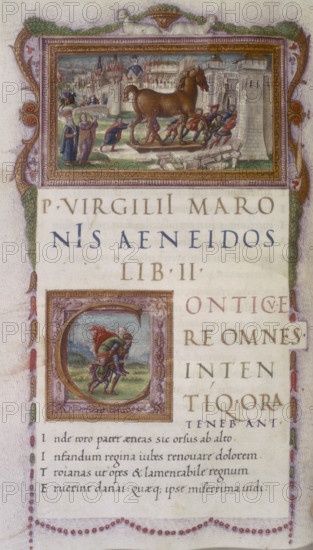 P · VIRGILII MARO
NIS AENEIDOS
LIB · II ·
CONTICVE
RE OMNES·
INTEN
TIQ· ORA
TENEBANT·
Inde toro pater æneas sic orsus ab alto
Infandum regina iubes renouare dolorem
Troianas ut opes & lamentabile regnum
Eruerint danai· quæq; ipse miserrima uidi